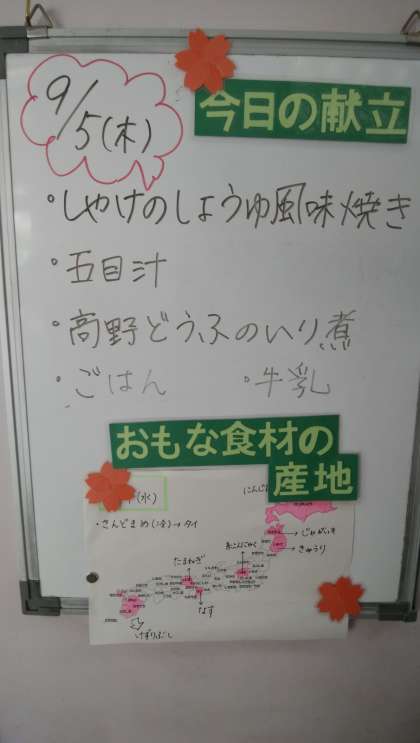 9/5(木)
今日の献立
・しゃけのしょうゆ風味焼き
・五目汁
・高野どうふのいり煮
・ごはん ・牛乳
おもな食材の
産地
(水)
・さんどまめ(冷)→タイ
じゃがいも
きゅうり
糸こんにゃく
たまねぎ
なす
けずりぶし